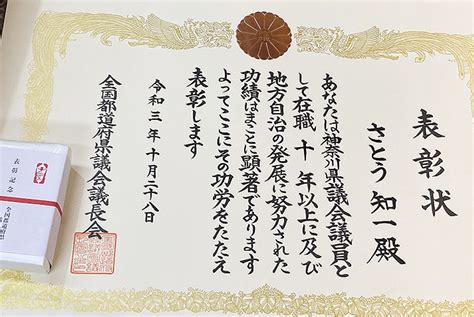 表彰状
さとう知一殿
あなたは神奈川県議会議員と
して在職十年以上に及び
地方自治の発展に努力された
功績はまことに顕著であります
よってここにその功労をたたえ
表彰します
令和三年十月二十八日
全国都道府県議会議長会
表彰記念